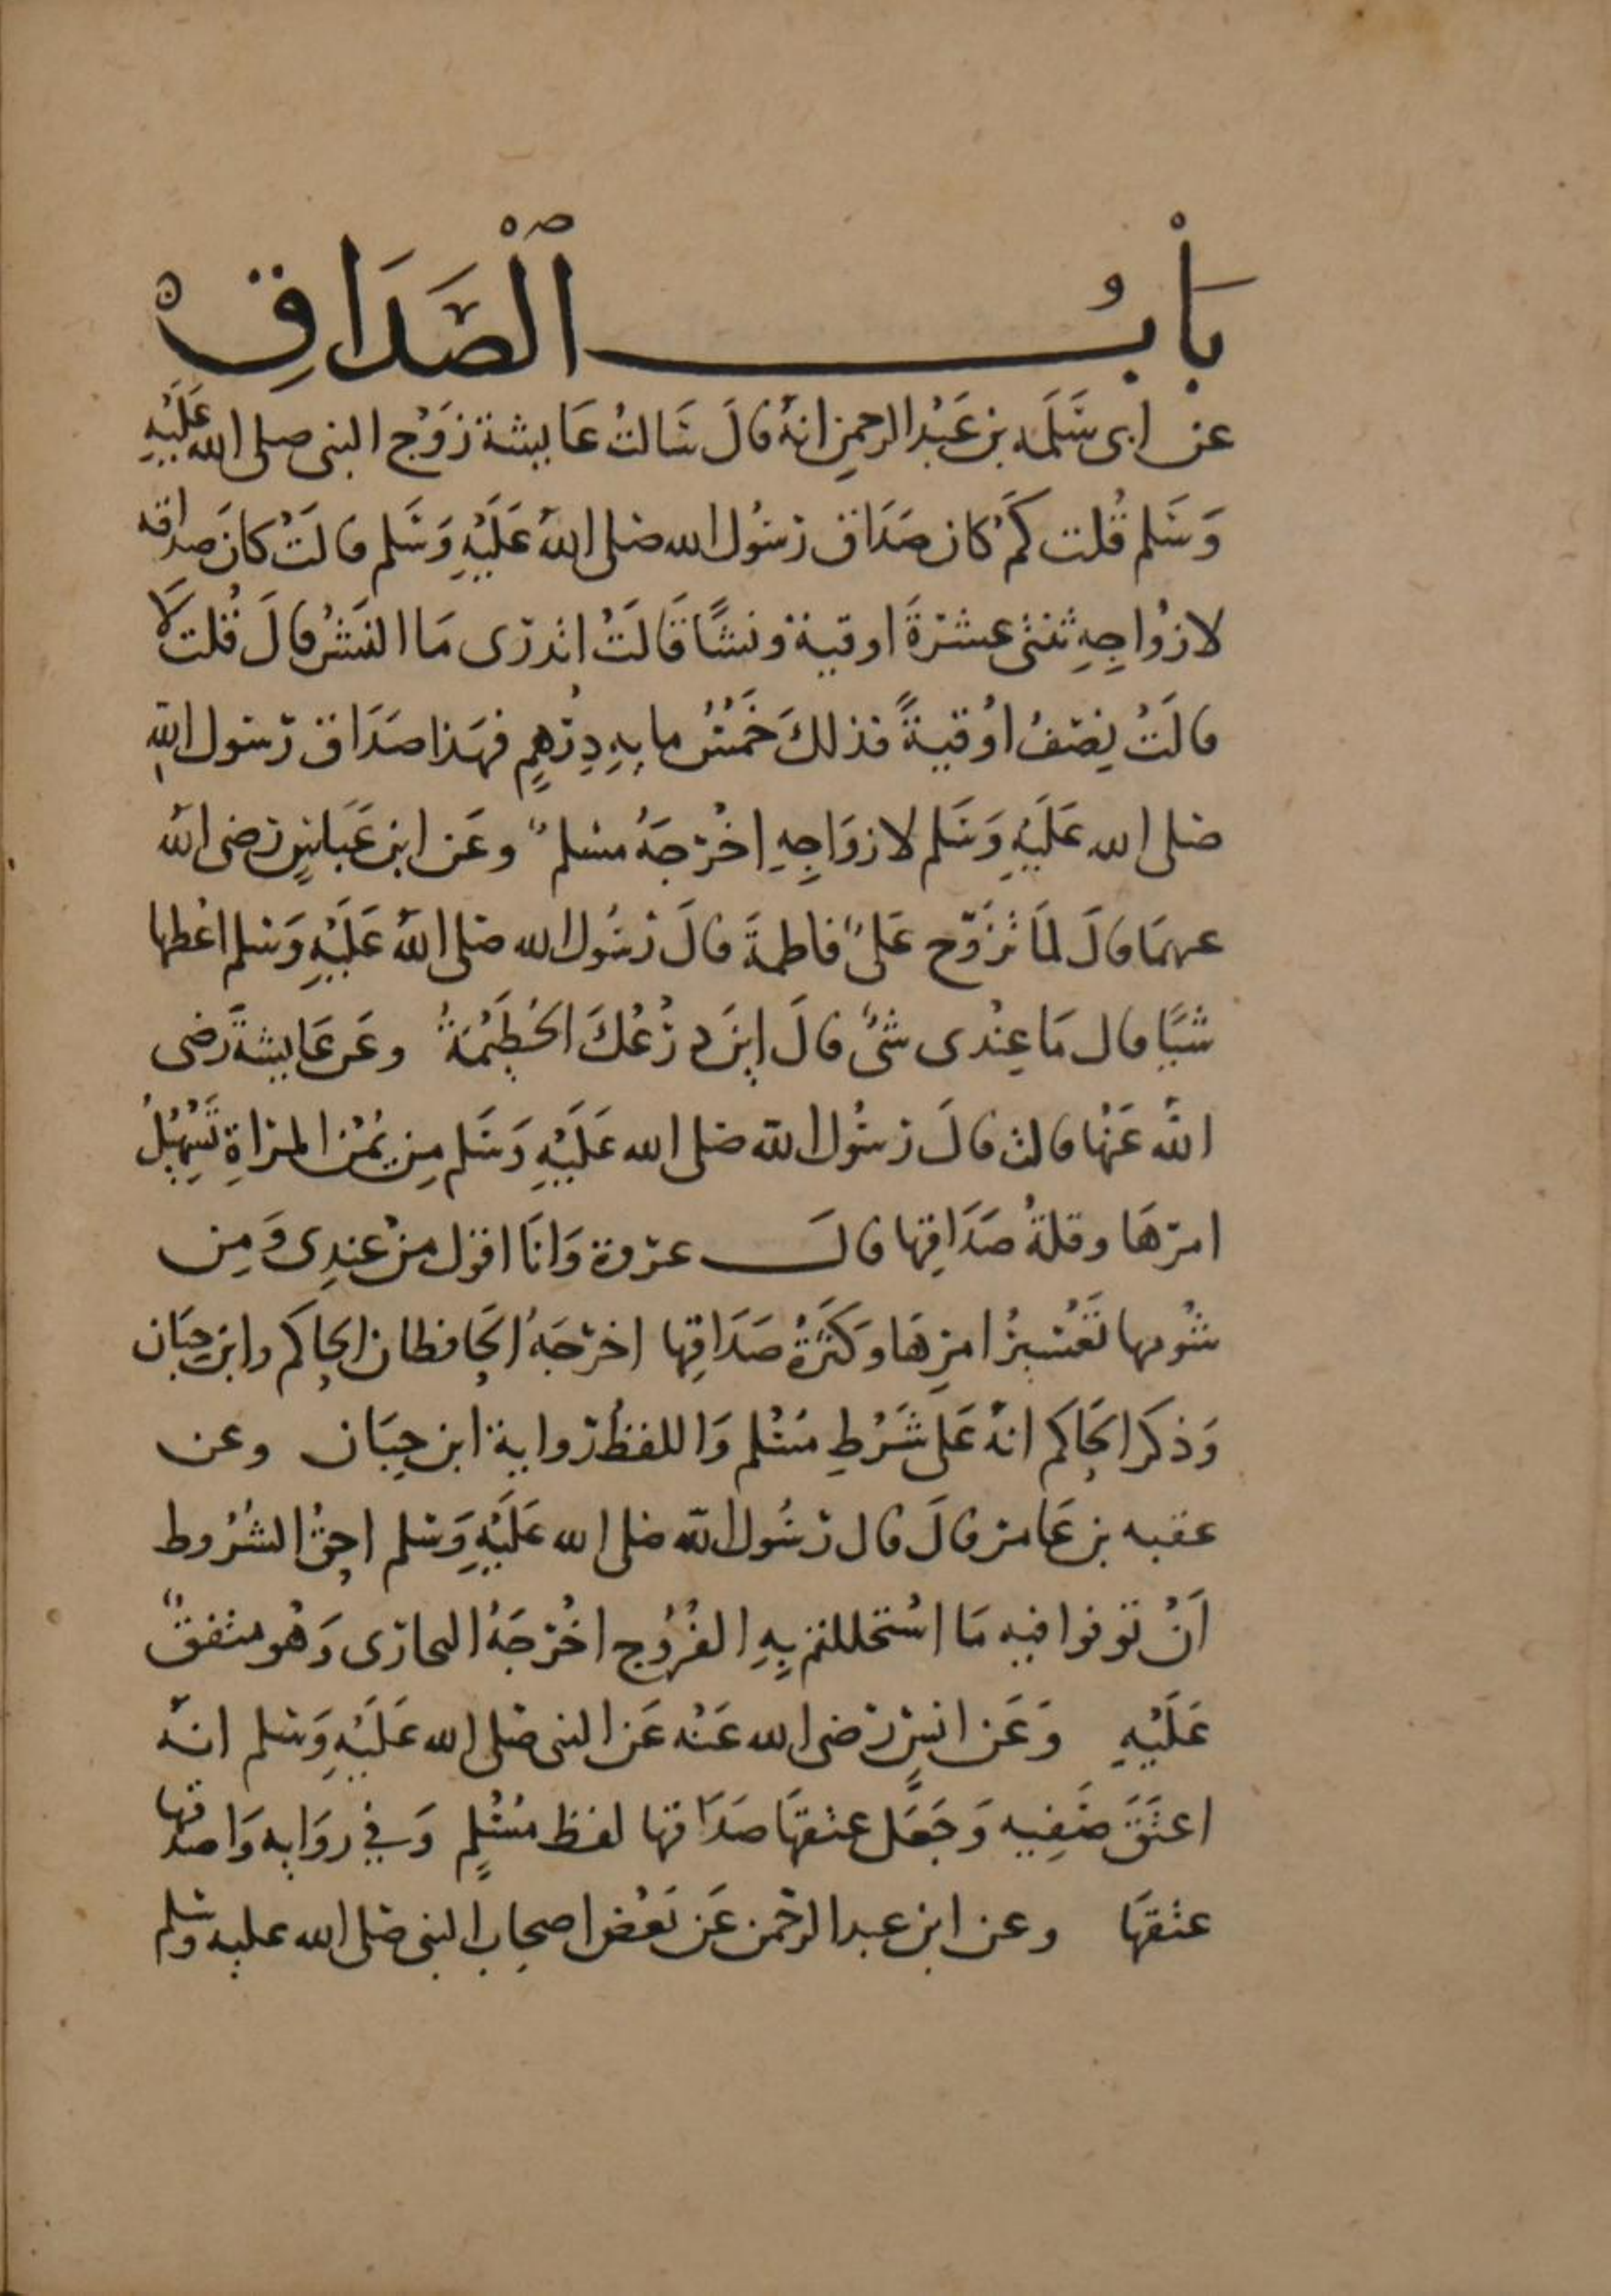 بَابُ الصَّدَاقِ
عن ابى سَلَمَه بن عَبْد الرحمنِ انهُ قالَ سَالتُ عَايشة زَوْج النبى صلى الله عَلَيْهِ
وَسَلم قُلت كَمْ كان صَدَاق رَسُول الله صلى اللهُ عَلَيْهِ وَسَلم قالَتْ كانَ صداقه
لازْواجِهِ ثنتى عشرَةَ اوقية ونشًا قَالَتْ اتدرى مَا النَشُّ قالَ قُلت لَا
قالَتْ نِصْفُ اوُقيةً فذلكَ خَمْسُ مايهِ دِرْهِمٍ فهَذا صَدَاق رَسول اللهِ
صلى الله عَلَيْهِ وَسَلم لازوَاجِهِ اخْرَجَهُ مسلمٌ وعَن ابن عَباسٍ رَضى الله
عنهمَا قالَ لمَا تزَوّج علىٌ فاطمةَ قالَ رَسُول الله صلى اللهُ عَلَيْهِ وَسلم اعْطها
شيًا قال مَا عِنْدى شىٌ قالَ اينَ دِرْعُكَ الحُطَمِيَّةُ وعَن عَايشةَ رَضى
اللهُ عَنْها قالت قالَ رَسُول الله صلى الله عَلَيْهِ وَسَلم مِن يُمْن المرْاةِ تَسْهِيْلُ
امرهَا وقلةُ صَدَاقِها قالَ عروة وَانَا اقول منْ عندِى وَمِن
شُومها تَعْسيرُ امرِهَا وَكَثْرَةُ صَدَاقِها اخرَجَهُ الحَافظان الحاكم وابن حِبَان
وَذكرَ الحَاكم انهُ عَلى شَرْطِ مسْلم وَاللفظُ رواية ابن حِبَان وعن
عقبه بن عَامر قالَ قال رَسُول الله صلى الله عَلَيْهِ وَسلم احقُ الشُرُوط
اَنْ توفوا فيه مَا اسْتحللتم بِهِ الفُرُوج اخْرَجَهُ البخارى وَهُو متفقٌ
عَلَيْهِ وَعَن انسٍ رَضى الله عَنْه عَن النبى صلى الله عَلَيْهِ وَسلم انهُ
اعتَقَ صَفِيه وَجَعَل عتقهَا صَدَاقها لفظ مسْلمٍ وَفي روَايه وَاصدقها
عتقهَا وعن ابن عبد الرحْمن عَن بَعْض اصحاب النبى صلى الله عليه وسلم